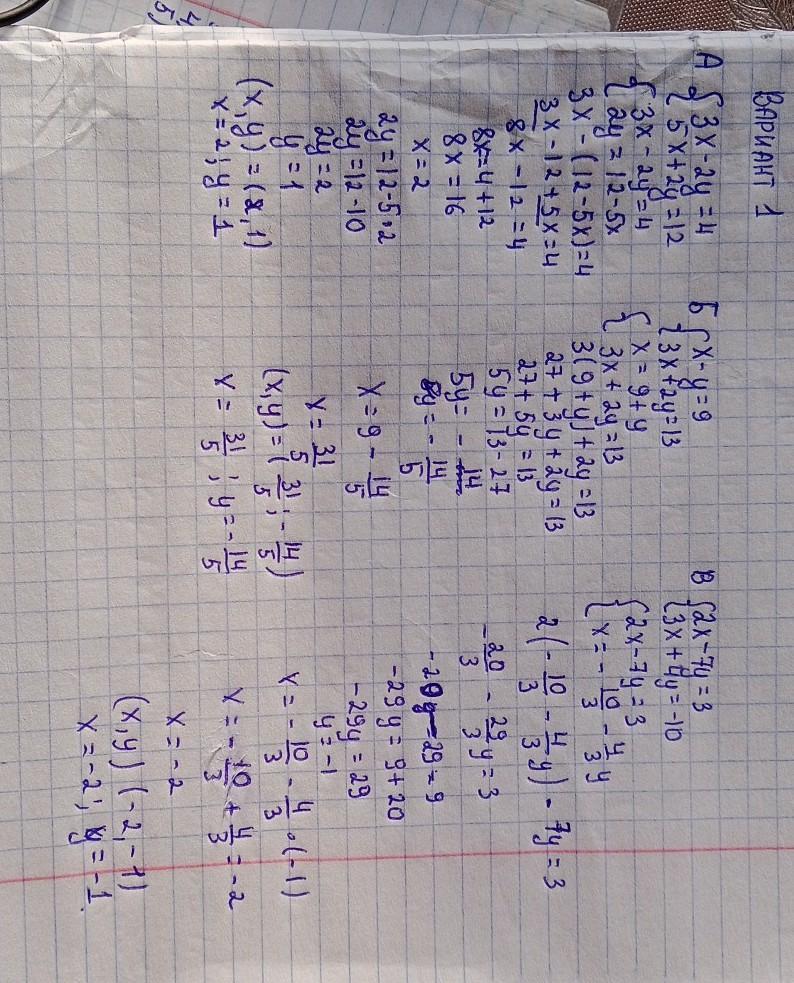 ВАРИАНТ 1
А { 3x - 2y = 4
{ 5x + 2y = 12
{ 3x - 2y = 4
{ 2y = 12 - 5x
3x - (12 - 5x) = 4
3x - 12 + 5x = 4
8x - 12 = 4
8x = 4 + 12
8x = 16
x = 2
2y = 12 - 5·2
2y = 12 - 10
2y = 2
y = 1
(x, y) = (2, 1)
x = 2; y = 1
Б { x - y = 9
{ 3x + 2y = 13
{ x = 9 + y
{ 3x + 2y = 13
3(9 + y) + 2y = 13
27 + 3y + 2y = 13
27 + 5y = 13
5y = 13 - 27
5y = - 14
y = - 14/5
x = 9 - 14/5
x = 31/5
(x, y) = (31/5; - 14/5)
x = 31/5; y = - 14/5
В { 2x - 7y = 3
{ 3x + 4y = -10
{ 2x - 7y = 3
{ x = - 10/3 - 4/3 y
2(- 10/3 - 4/3 y) - 7y = 3
- 20/3 - 29/3 y = 3
-20 - 29 = 9
-29y = 9 + 20
-29y = 29
y = -1
x = - 10/3 - 4/3 · (-1)
x = - 10/3 + 4/3 = -2
x = -2
(x, y) (-2, -1)
x = -2; y = -1